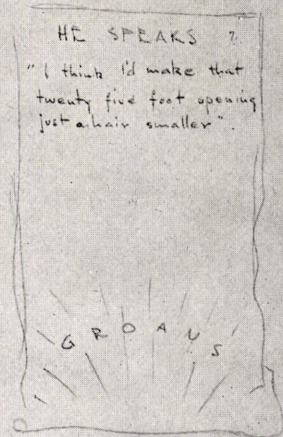 HE SPEAKS ?
"I think I'd make that
twenty five foot opening
just a hair smaller".
GROANS